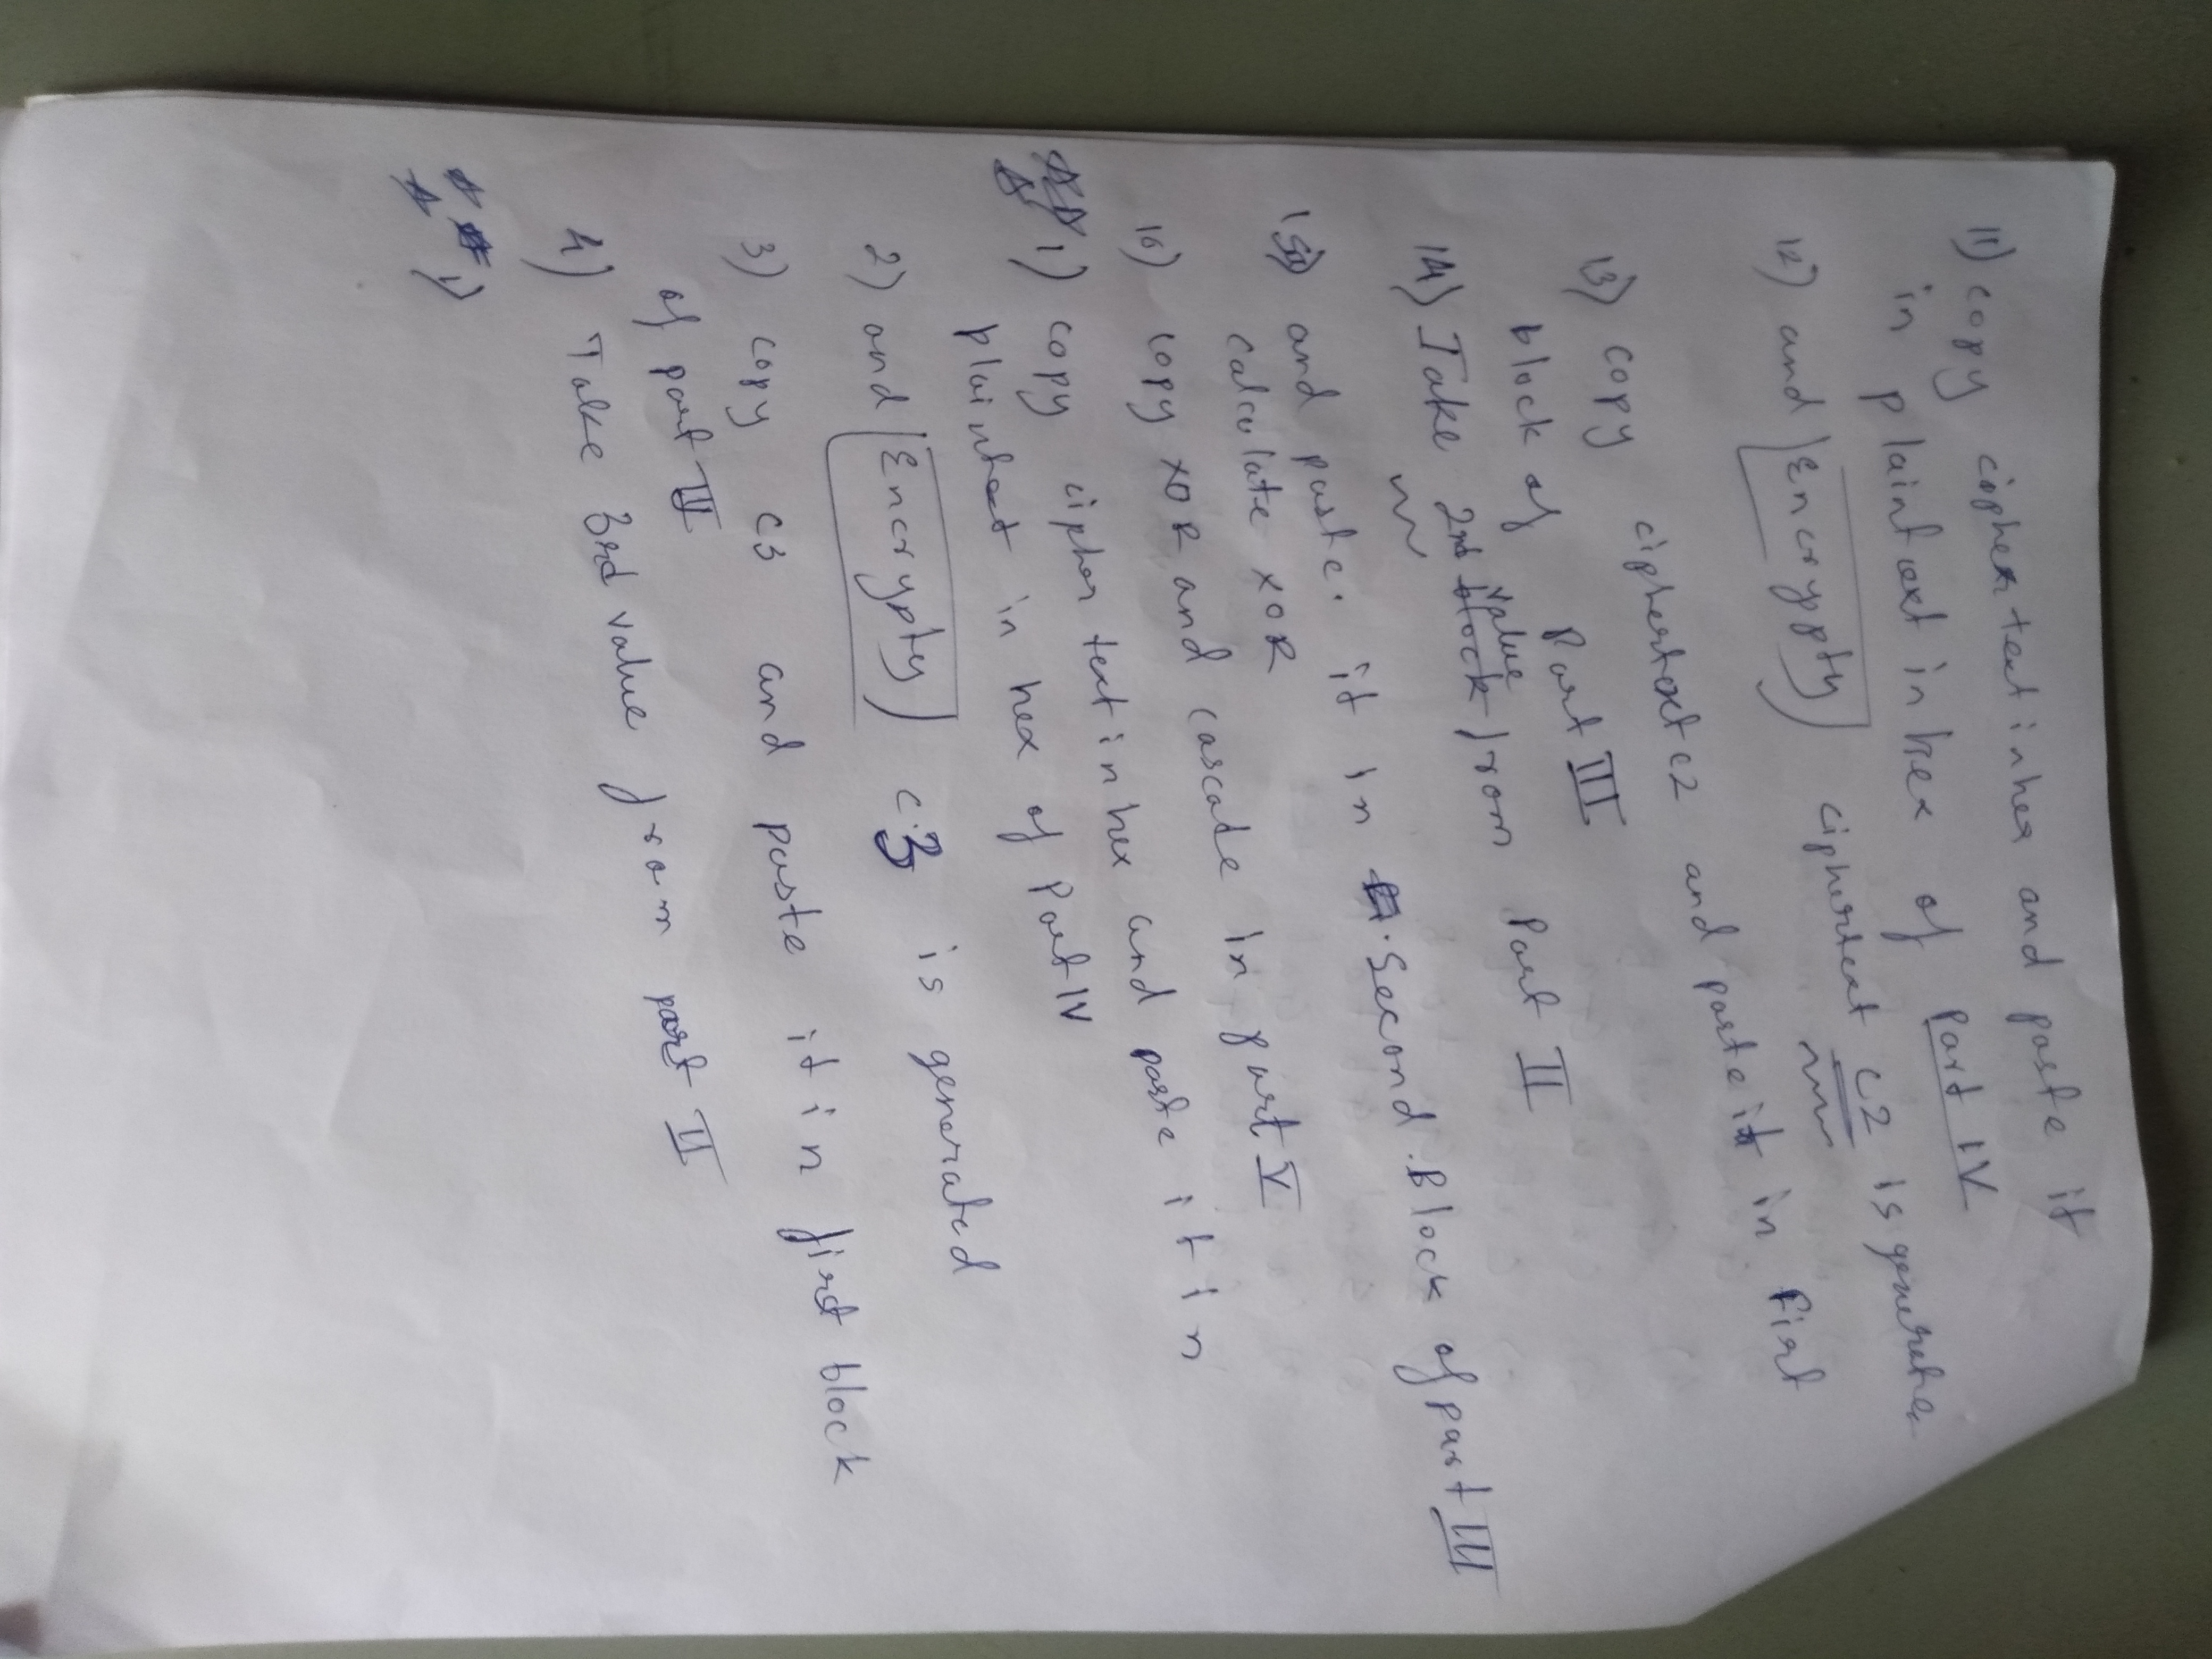 11) copy cipher text in hex and paste it
in plaintext in hex of Part IV
12) and Encryppty ciphertext c2 is generated
13) copy ciphertext c2 and paste it in First
block of Part III
value
14) Take 2nd block from Part II
15) and paste. it in Second Block of part III
calculate XOR
16) copy XOR and cascade in part V
1) copy cipher text in hex and paste it in
plaintext in hex of Part IV
2) and Encrypty c.3 is generated
3) copy c3 and paste it in first block
of part III
4) Take 3rd value from part II
1)